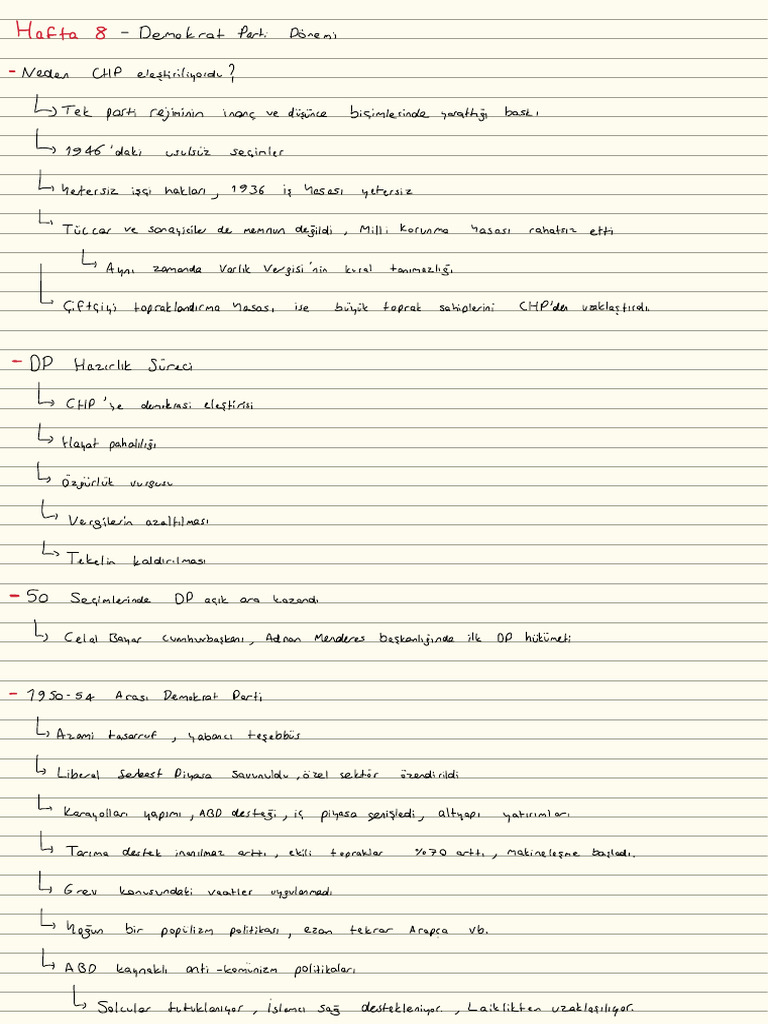 Hafta 8 - Demokrat Parti Dönemi
- Neden CHP eleştiriliyordu?
Tek parti rejiminin inanç ve düşünce biçimlerinde yarattığı baskı
1946'daki usulsüz seçimler
Yetersiz işçi hakları, 1936 iş Yasası yetersiz
Tüccar ve sanayiciler de memnun değildi, Milli Korunma Yasası rahatsız etti
Aynı zamanda Varlık Vergisi'nin kural tanımazlığı
Çiftçiyi topraklandırma Yasası ise büyük toprak sahiplerini CHP'den uzaklaştırdı.
- DP Hazırlık Süreci
CHP'ye demokrasi eleştirisi
Hayat pahalılığı
Özgürlük vurgusu
Vergilerin azaltılması
Tekelin kaldırılması
- 50 Seçimlerinde DP açık ara kazandı
Celal Bayar cumhurbaşkanı, Adnan Menderes başkanlığında ilk DP hükümeti
- 1950-54 Arası Demokrat Parti
Azami tasarruf, yabancı teşebbüs
Liberal Serbest Piyasa savunuldu, özel sektör özendirildi
Karayolları yapımı, ABD desteği, iç piyasa genişledi, altyapı yatırımları
Tarıma destek inanılmaz arttı, ekili topraklar %70 arttı, makineleşme başladı.
Grev konusundaki vaatler uygulanmadı
Yoğun bir popülizm politikası, ezan tekrar Arapça vb.
ABD kaynaklı anti-komünizm politikaları
Solcular tutuklanıyor, İslamcı sağ destekleniyor., Laiklikten uzaklaşılıyor.